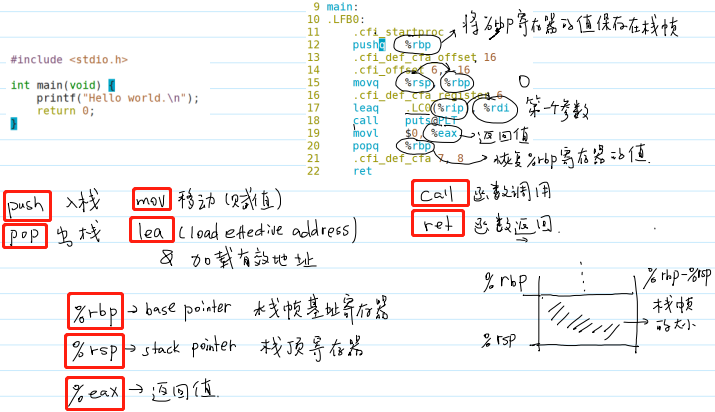 #include <stdio.h>
int main(void) {
printf("Hello world.\n");
return 0;
}
9 main:
10 .LFB0:
11 .cfi_startproc
12 pushq %rbp
将%rbp寄存器的值保存在栈帧
13 .cfi_def_cfa_offset 16
14 .cfi_offset 6, -16
15 movq %rsp, %rbp
16 .cfi_def_cfa_register 6
17 leaq .LC0(%rip), %rdi
第一个参数
18 call puts@PLT
19 movl $0, %eax
返回值
20 popq %rbp
恢复%rbp寄存器的值.
21 .cfi_def_cfa 7, 8
22 ret
push 入栈
mov 移动(赋值)
call 函数调用
pop 出栈
lea (load effective address)
加载有效地址
ret 函数返回.
%rbp → base pointer 栈帧基址寄存器
%rsp → stack pointer 栈顶寄存器
%eax → 返回值.
%rbp
%rsp
%rbp-%rsp
栈帧
的大小